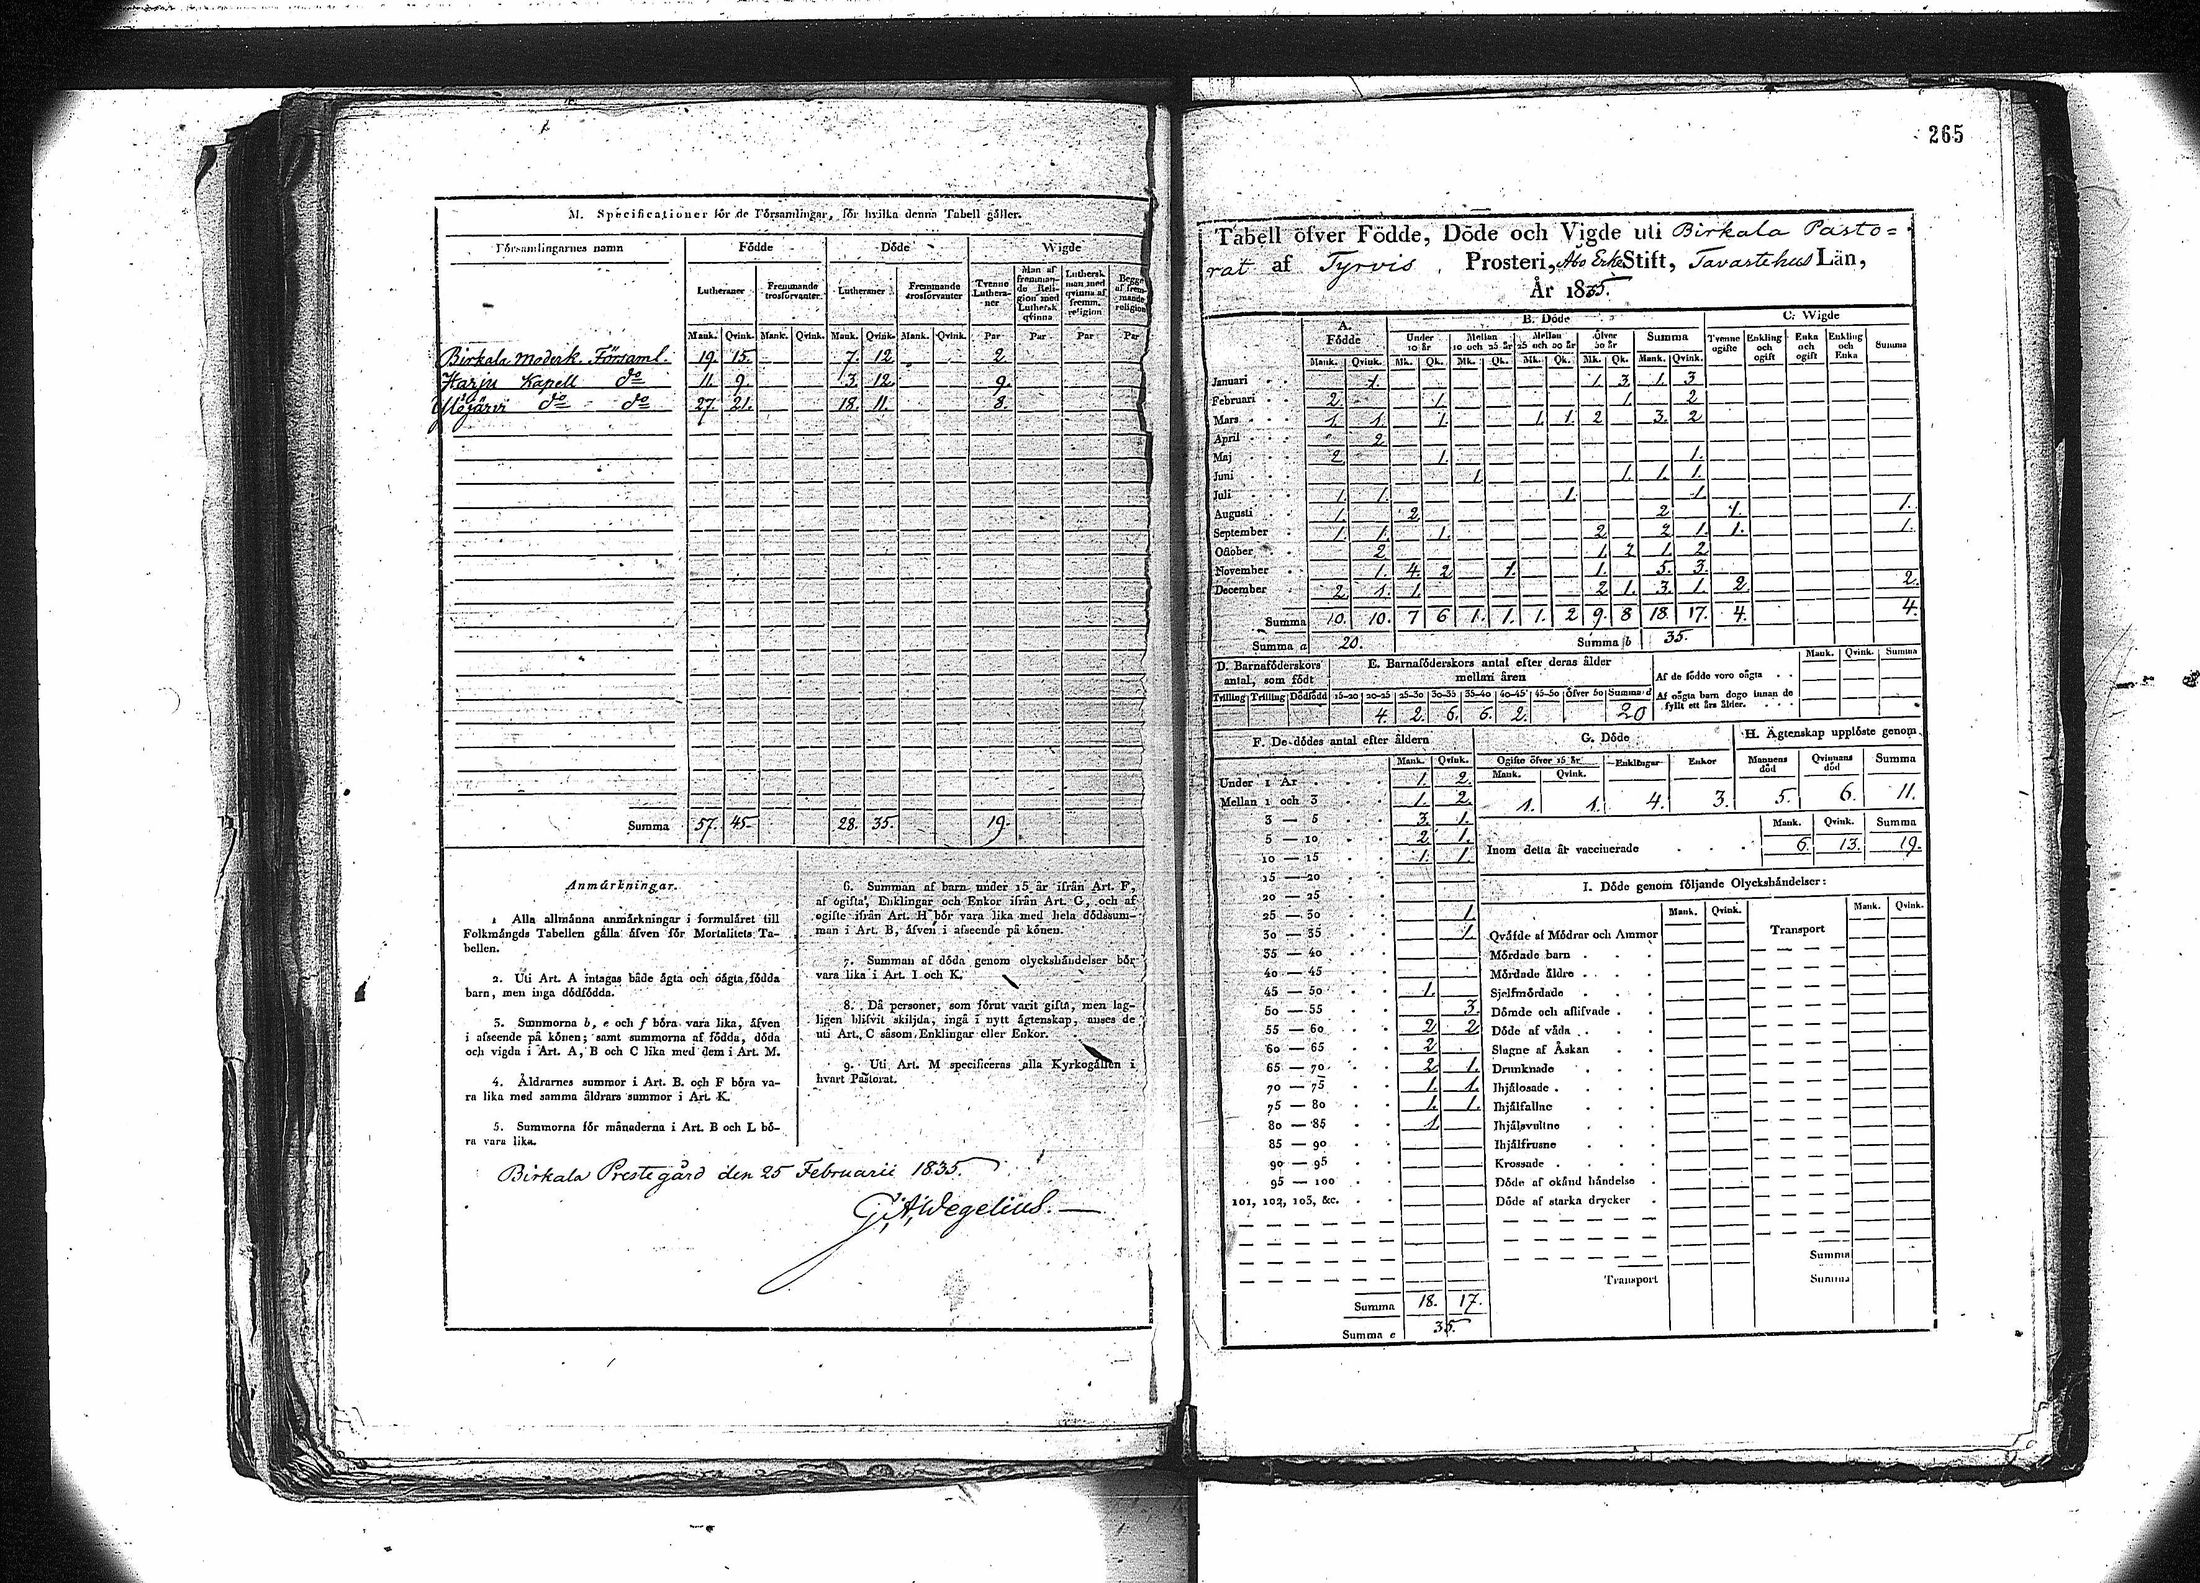 265
M. Specificationer för de Församlingar, för hvilka denna Tabell gäller.
Församlingarnes namn Födde Döde Wigde
Lutheraner Fremmande trosförvanter Lutheraner Fremmande trosförvanter Tvenne Lutheraner Man af fremmande Religion med Luthersk qvinna Luthersk man med qvinna af fremm. religion Begge af fremmande religion
Mank. Qvink. Mank. Qvink. Mank. Qvink. Mank. Qvink. Par Par Par Par
Birkala moderk. Församl. 19. 15. 7. 12. 2.
Harju Kapell do 11. 9. 3. 12. 9.
Ylöjärvi do do 27. 21. 18. 11. 8.
Summa 57. 45. 28. 35. 19.
Anmärkningar.
1 Alla allmänna anmärkningar i formuläret till
Folkmängds Tabellen gälla äfven för Mortalitets Ta-
bellen.
2. Uti Art. A intagas både ägta och oägta födda
barn, men inga dödfödda.
3. Summorna b, e och f böra vara lika, äfven
i afseende på könen; samt summorna af födda, döda
och vigda i Art. A, B och C lika med dem i Art. M.
4. Åldrarnes summor i Art. B. och F böra va-
ra lika med samma åldrars summor i Art. K.
5. Summorna för månaderna i Art. B och L bö-
ra vara lika.
6. Summan af barn under 15 år ifrån Art. F,
af ogifta, Enklingar och Enkor ifrån Art. G, och af
ogifte ifrån Art. H bör vara lika med hela dödssum-
man i Art. B, äfven i afseende på könen.
7. Summan af döda genom olyckshändelser bör
vara lika i Art. I och K.
8. Då personer, som förut varit gifta, men lag-
ligen blifvit skiljda, ingå i nytt ägtenskap, anses de
uti Art. C såsom Enklingar eller Enkor.
9. Uti Art. M specificeras alla Kyrkogällen i
hvart Pastorat.
Birkala Prestegård den 25 Februarii 1835.
G. A. Wegelius.
Tabell öfver Födde, Döde och Vigde uti Birkala Pasto=
rat af Tyrvis Prosteri, Åbo Erke Stift, Tavastehus Län,
År 1835.
A. Födde B. Döde C. Wigde
Under 10 år Mellan 10 och 25 år Mellan 25 och 50 år Öfver 50 år Summa Tvenne ogifte Enkling och ogift Enka och ogift Enkling och Enka Summa
Mank. Qvink. Mk. Qk. Mk. Qk. Mk. Qk. Mk. Qk. Mank. Qvink.
Januari 1. 1. 3. 1. 3
Februari 2. 1. 1. 2
Mars 1. 1. 1. 1. 1. 2 3. 2
April 2
Maj 2. 1. 1.
Juni 1. 1. 1. 1.
Juli 1. 1. 1. 1
Augusti 1. 2 2 1. 1.
September 1. 1. 1. 2 2 1. 1. 1.
October 2 1. 2 1. 2
November 1. 4. 2 1. 1. 5. 3.
December 2 1. 1. 2 1. 3. 1. 2. 2.
Summa 10. 10. 7 6 1. 1. 1. 2 9. 8 18. 17. 4. 4.
Summa a 20. Summa b 35.
D. Barnaföderskors antal, som födt E. Barnaföderskors antal efter deras ålder mellan åren Mank. Qvink. Summa
Af de födde voro oägta
Tvilling Trilling Dödfödd 15-20 20-25 25-30 30-35 35-40 40-45 45-50 Öfver 50 Summa d Af oägta barn dogo innan de fyllt ett års ålder.
4. 2. 6. 6. 2. 20
F. De dödes antal efter åldern G. Döde H. Ägtenskap upplöste genom
Mank. Qvink. Ogifte öfver 15 år Enklingar Enkor Mannens död Qvinnans död Summa
Mank. Qvink.
Under 1 År 1. 2.
Mellan 1 och 3 1. 2. 1. 1. 4. 3. 5. 6. 11.
3 — 5 3. 1. Mank. Qvink. Summa
5 — 10 2 1. Inom detta år vaccinerade 6. 13. 19.
10 — 15 1. 1.
15 — 20 I. Döde genom följande Olyckshändelser:
20 — 25 Mank. Qvink. Mank. Qvink.
25 — 30 1.
30 — 35 1. Qväfde af Mödrar och Ammor Transport
35 — 40 Mördade barn
40 — 45 Mördade äldre
45 — 50 1. Sjelfmördade
50 — 55 3. Dömde och aflifvade
55 — 60 2 2 Döde af våda
60 — 65 2 Slagne af Åskan
65 — 70 2. 1. Drunknade
70 — 75 1. 1. Ihjälosade
75 — 80 1. 1. Ihjälfallne
80 — 85 1 Ihjälsvultne
85 — 90 Ihjälfrusne
90 — 95 Krossade
95 — 100 Döde af okänd händelse
101, 102, 103, &c. Döde af starka drycker
Summa
Transport Summa
Summa 18. 17.
Summa e 35.